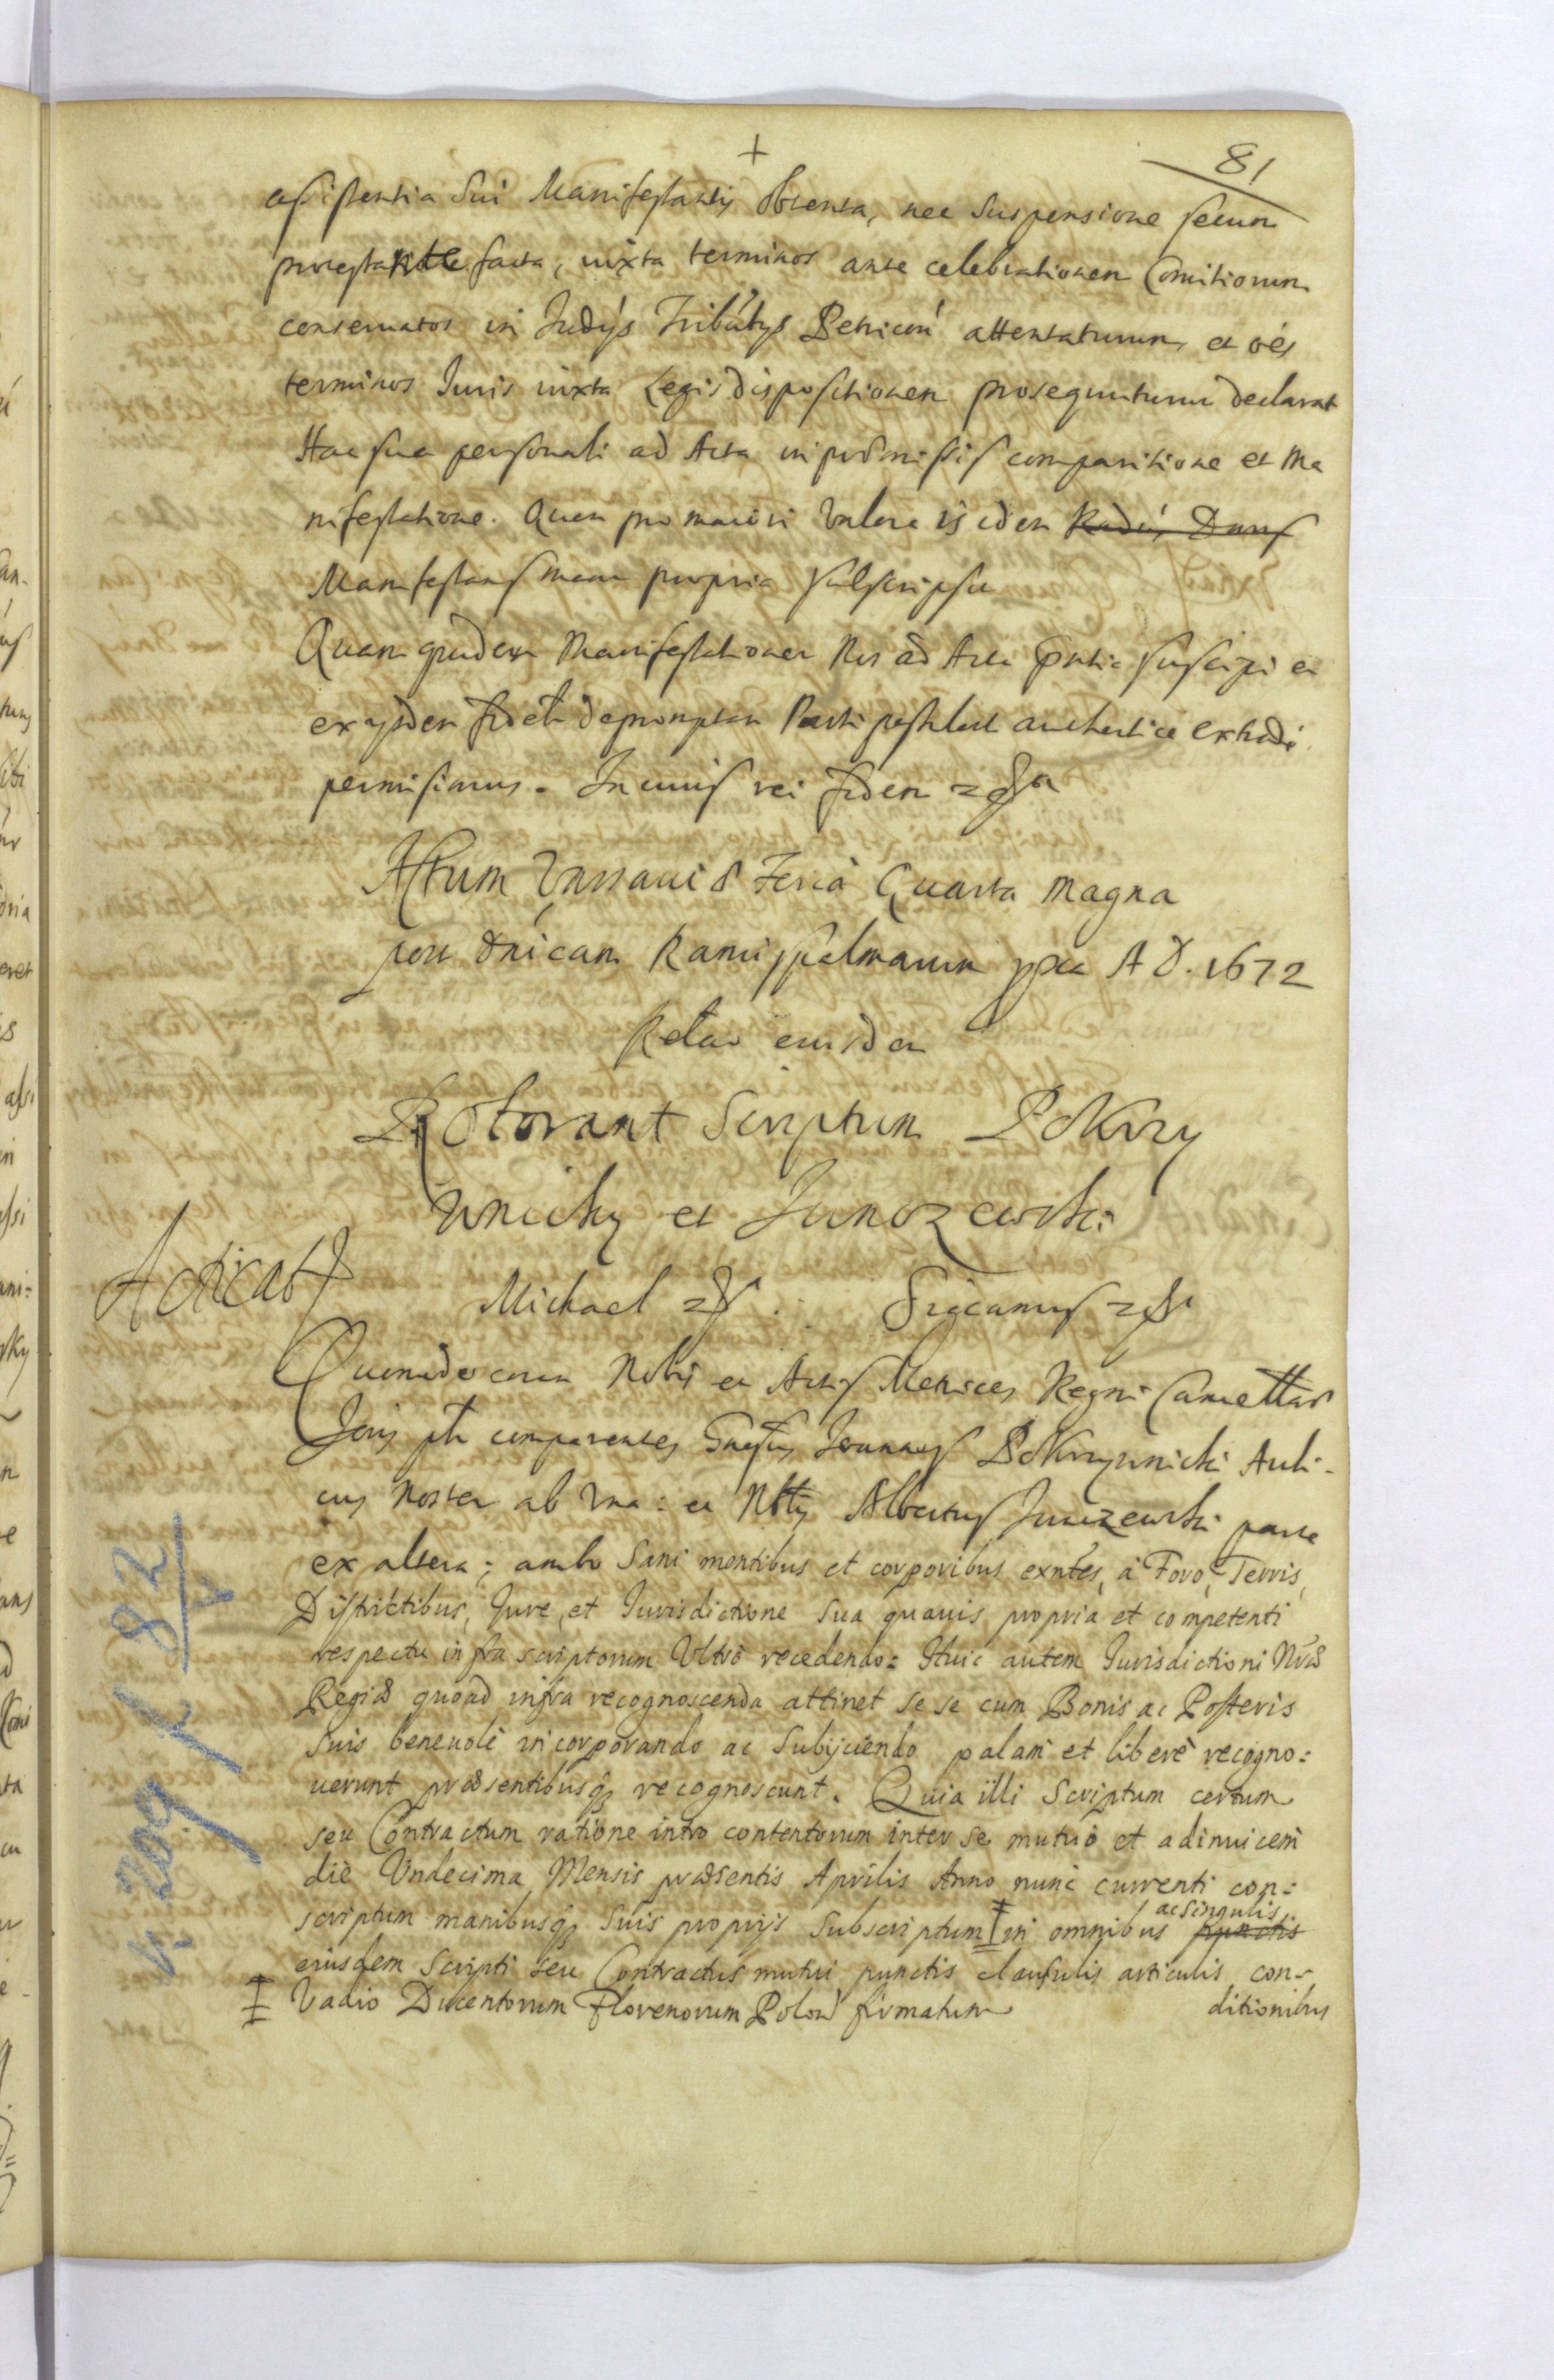 +
81
assistentia Sui Manifestantis obtenta, nec Suspensione secum
protestante facta, iuxta terminos ante celebrationem Comitiorum
conseruatos in Judijs Tribútys Petricoú attentaturum, et óes
terminos Juris iuxta Legis dispositionem prosequuturum declarat
Hac sua personali ad Acta in praemissis comparitione et Ma
nifestatione. Quam pro maiori valore is idem
Manifestans manu propria subscripsit
Quam quidem Manifestationem Nos ad Acta suscipi et
ex ysdem depromptam Parti postulant authentice extradi
permisimus. In cuius rei fidem
Actum Varsauiae Feria Quarta Magna
post Dnicam Ramispalmarum A D. 1672
Relao eiusdem
Roborant Scriptum Pokrzy
wnicky et Junczewski
Acticat
Michael . Significamus
Quomodo coram Nobis et Actis Metrices Regni Cancellar
comparentes Joannes Pokrzywnicki Auli-
cus Noster ab Vna: et Albertus Junczewski parte
ex altera; ambo Sani mentibus et corporibus exntes, à Foro, Terris,
Districtibus, Jure, et Jurisdictione sua quauis propria et competenti
respectu infra scriptorum Vltrò recedendo: Huic autem Jurisdictioni Nrae
Regiae quoad infra recognoscenda attinet se se cum Bonis ac Posteris
suis beneuolè incorporando ac Subijciendo palam et liberè recogno:
uerunt praesentibusq; recognoscunt. Quia illi Scriptum certum
seu Contractum ratione intro contentorum inter se mutuò et adinuicem
die Vndecima Mensis praesentis Aprilis Anno nunc currenti con:
ac singulis
scriptum manibusq; suis proprijs Subscriptum ‡ in omnibus punctis
eiusdem Scripti seu Contractus mutui punctis clausulis articulis con-
‡ Vadio Ducentorum Florenorum Polon firmatum
ditionibus
k 209 f 82 v